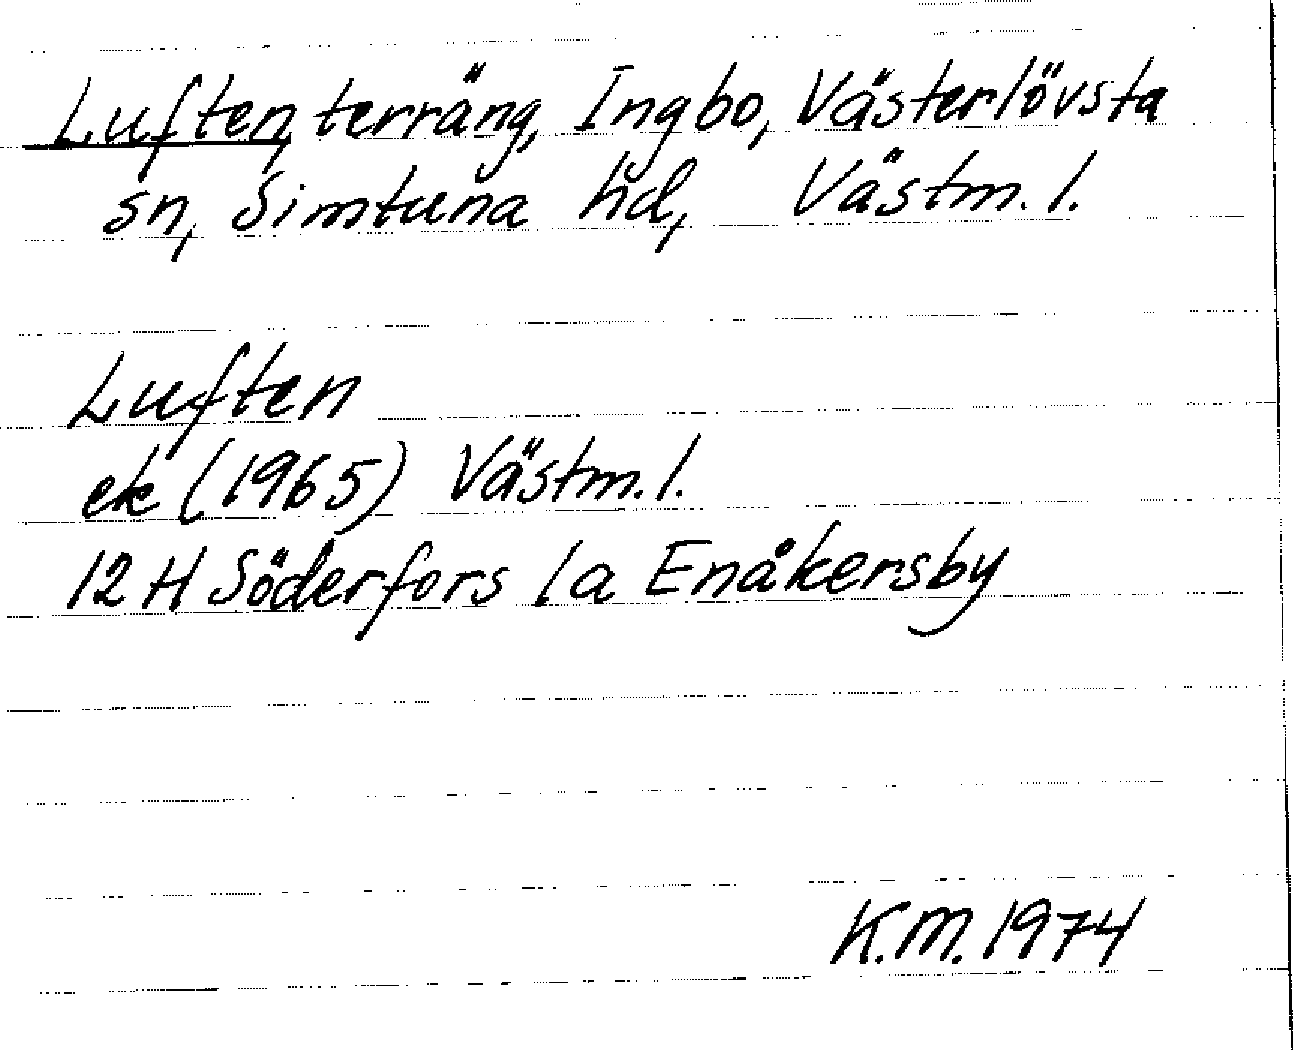 Luften, terräng, Ingbo, Västerlövsta
sn, Simtuna hd, Västm. l.
Luften
ek (1965) Västm. l.
12 H Söderfors 1a Enåkersby
K.M. 1974